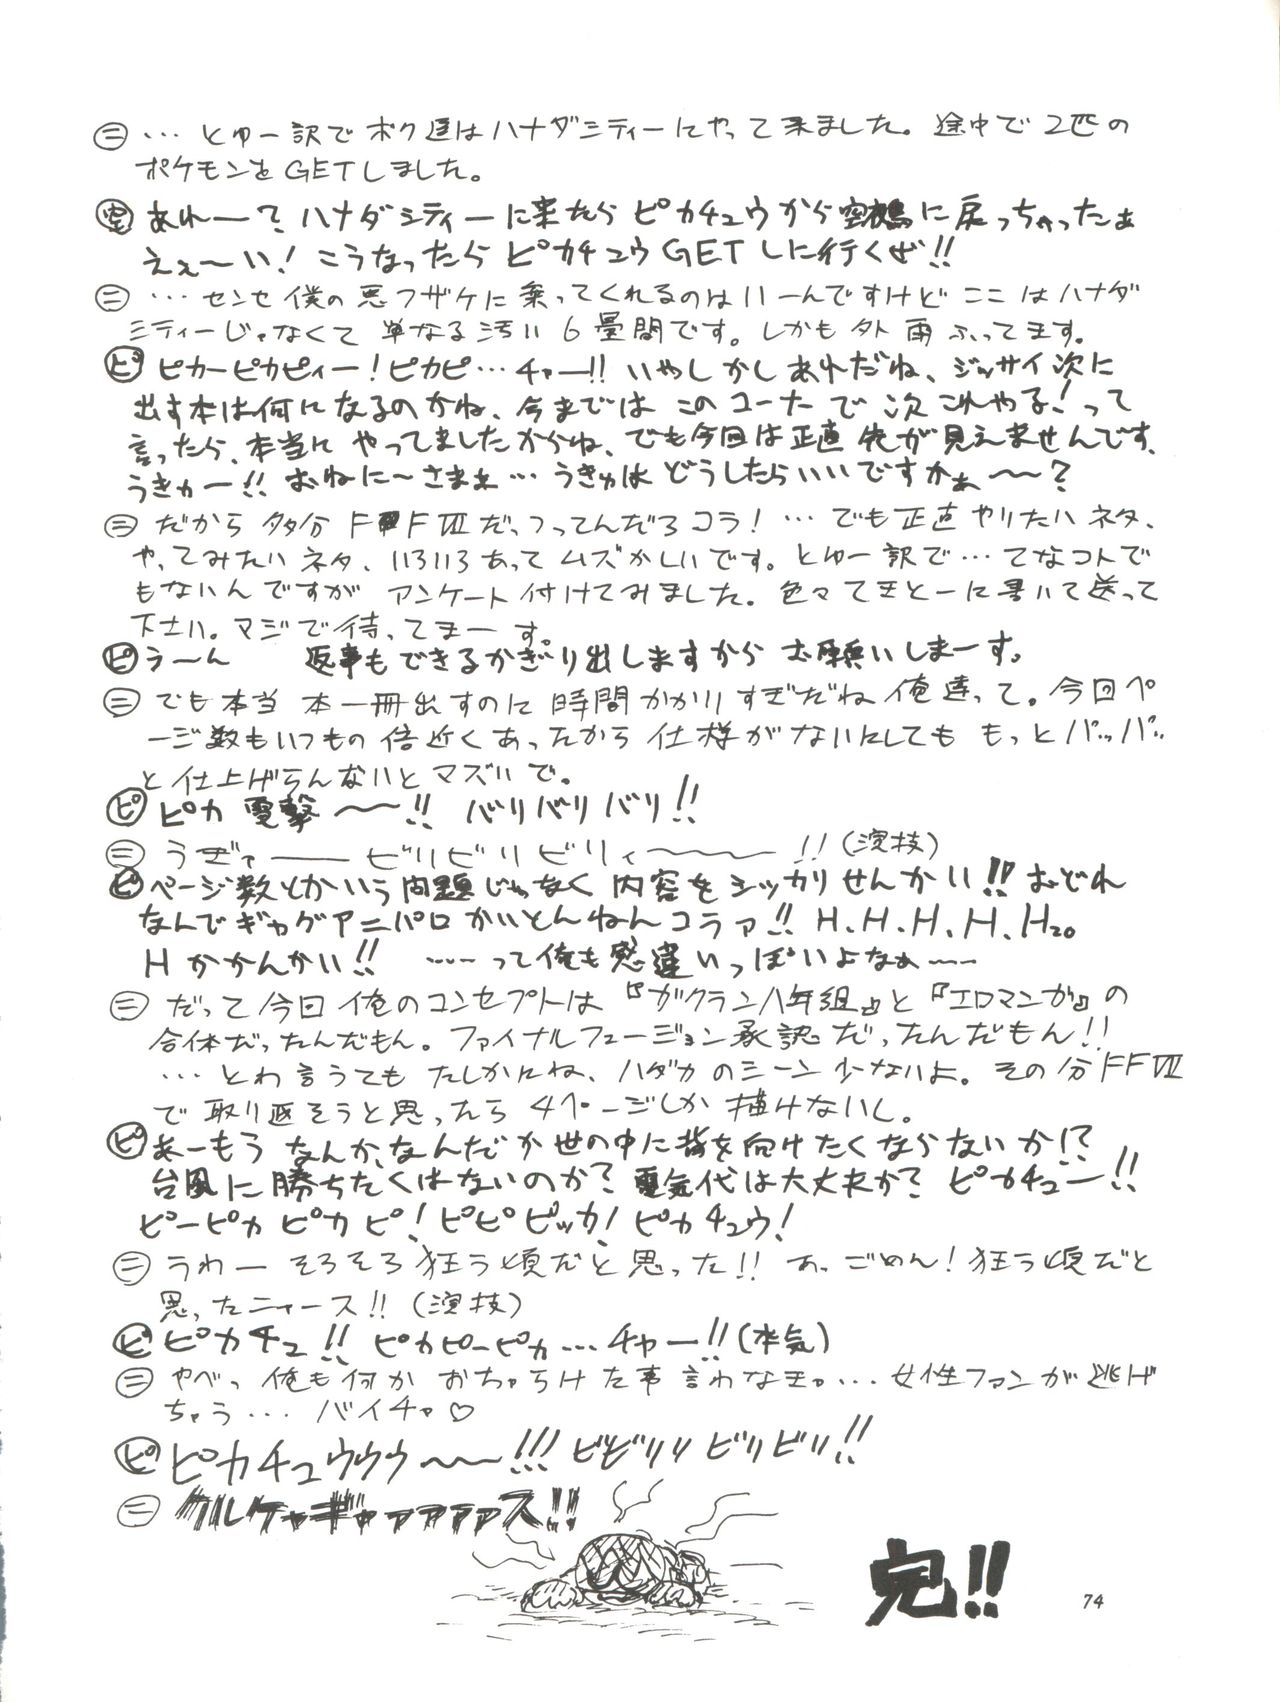 ㊁ … とゆー訳でボク達はハナダシティーにやって来ました。途中で2匹の
ポケモンをGETしました。
あれーー? ハナダシティーに来たらピカチュウから空鵺に戻っちゃったぁ
えぇ〜い! こうなったらピカチュウGETしに行くぜ!!
㊁ … センセ僕の悪フザケに乗ってくれるのはいーんですけどここはハナダ
シティーじゃなくて単なる汚い6畳間です。しかも外雨ふってます。
ピ ピカーピカピィー!ピカピ…チャー!! いやしかしあれだね、ジッサイ次に
出す本は何になるのかね、今まではこのコーナーで次これやる!って
言ったら、本当にやってましたからね、でも今回は正直先が見えませんです、
うきゃー!! おねに〜さまぁ…うきゅはどうしたらいいですかぁ〜〜?
㊁ だから多分FFⅦだっつってんだろコラ! …でも正直やりたいネタ、
やってみたいネタ、いろいろあってムズかしいです。とゆー訳で…てなコトで
もないんですがアンケート付けてみました。色々てきとーに書いて送って
下さい。マジで待ってまーす。
ピ う〜ん 返事もできるかぎり出しますからお願いしまーす。
㊁ でも本当本一冊出すのに時間かかりすぎだね俺達って。今回ペ
ージ数もいつもの倍近くあったから仕様がないにしてももっとパッパッ
と仕上げらんないとマズいで。
ピ ピカ電撃〜〜!! バリバリバリ!!
㊁ うぎァーー ビリビリビリィ〜〜〜!! (演技)
ピ ページ数とかいう問題じゃなく内容をシッカリせんかい!! おどれ
なんでギャグアニパロかいとんねんコラァ!! H.H.H.H.H₂₀
Hかかんかい!! ……って俺も感違いっぽいよなぁ……
㊁ だって今回俺のコンセプトは『ガクラン八年組』と『エロマンガ』の
合体だったんだもん。ファイナルフュージョン承認だったんだもん!!
… とわ言うてもたしかにね、ハダカのシーン少ないよ。その分FFⅦ
で取り返そうと思ったら4ページしか描けないし。
ピ あーもうなんか、なんだか世の中に背を向けたくならないか!?
台風に勝ちたくはないのか? 電気代は大丈夫か? ピカチュー!!
ピーピカピカピ! ピピピッカ! ピカチュウ!
㊁ うわー そろそろ狂う頃だと思った!! あっごめん! 狂う頃だと
思ったニャース!! (演技)
ピ ピカチュ!! ピカピーピカ…チャー!! (本気)
㊁ やべっ俺も何かおちゃらけた事言わなきゃ…女性ファンが逃げ
ちゃう… バイチャ♡
ピ ピカチュウウウ〜〜!!! ビビリリビリビリ!!
㊁ クルケャギャァァァァス!!
完!!
74